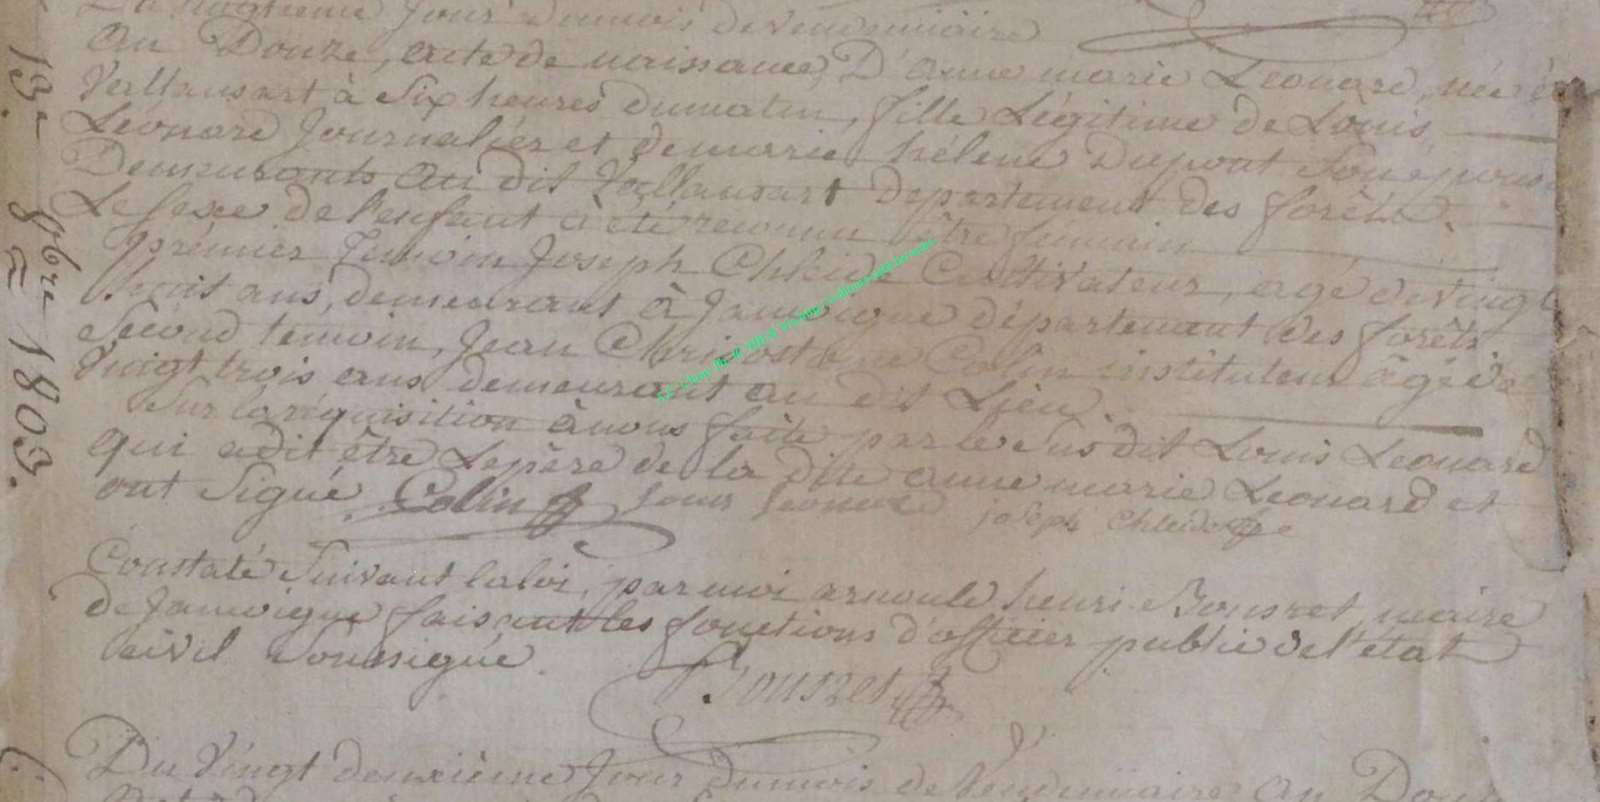 Du vingtieme Jour Dumois de Vendemiaire
an Douze, acte de naissance, D'anne marie Leonard, née à
Vallansart à Six heures dumatin, fille Légitime de Loüis
Léonard Journalier et demarie hélene Dupont Son epouse
Demeurants au dit Vallansart departement des forêts.
Le Sexe de l'enfant à été reconnu être feminin
prémier Temoin Joseph Chleide Cultivateur, agé de Vingt
huit ans, demeurant à Jamoigne département des forêts
Second temoin, Jean Chrisostome Colin instituteur âgé de
Vingt trois ans demeurant au dit Lieu.
Sur la réquisition à nous faite par le Susdit Louis Leonard
qui adit être Lepère de la dite anne marie Leonard et
ont Signé, Colin Louis Leonard Joseph Chleide
Constaté Suivant laloi, par moi arnould henri Bonsret, maire
de Jamoigne faisant les fonctions d'officier public de l'état
civil Soussigné.
Bonsret
Du Vingt deuxième Jour Dumois de Vendemiaire an Douze
13. 8bre 1803.